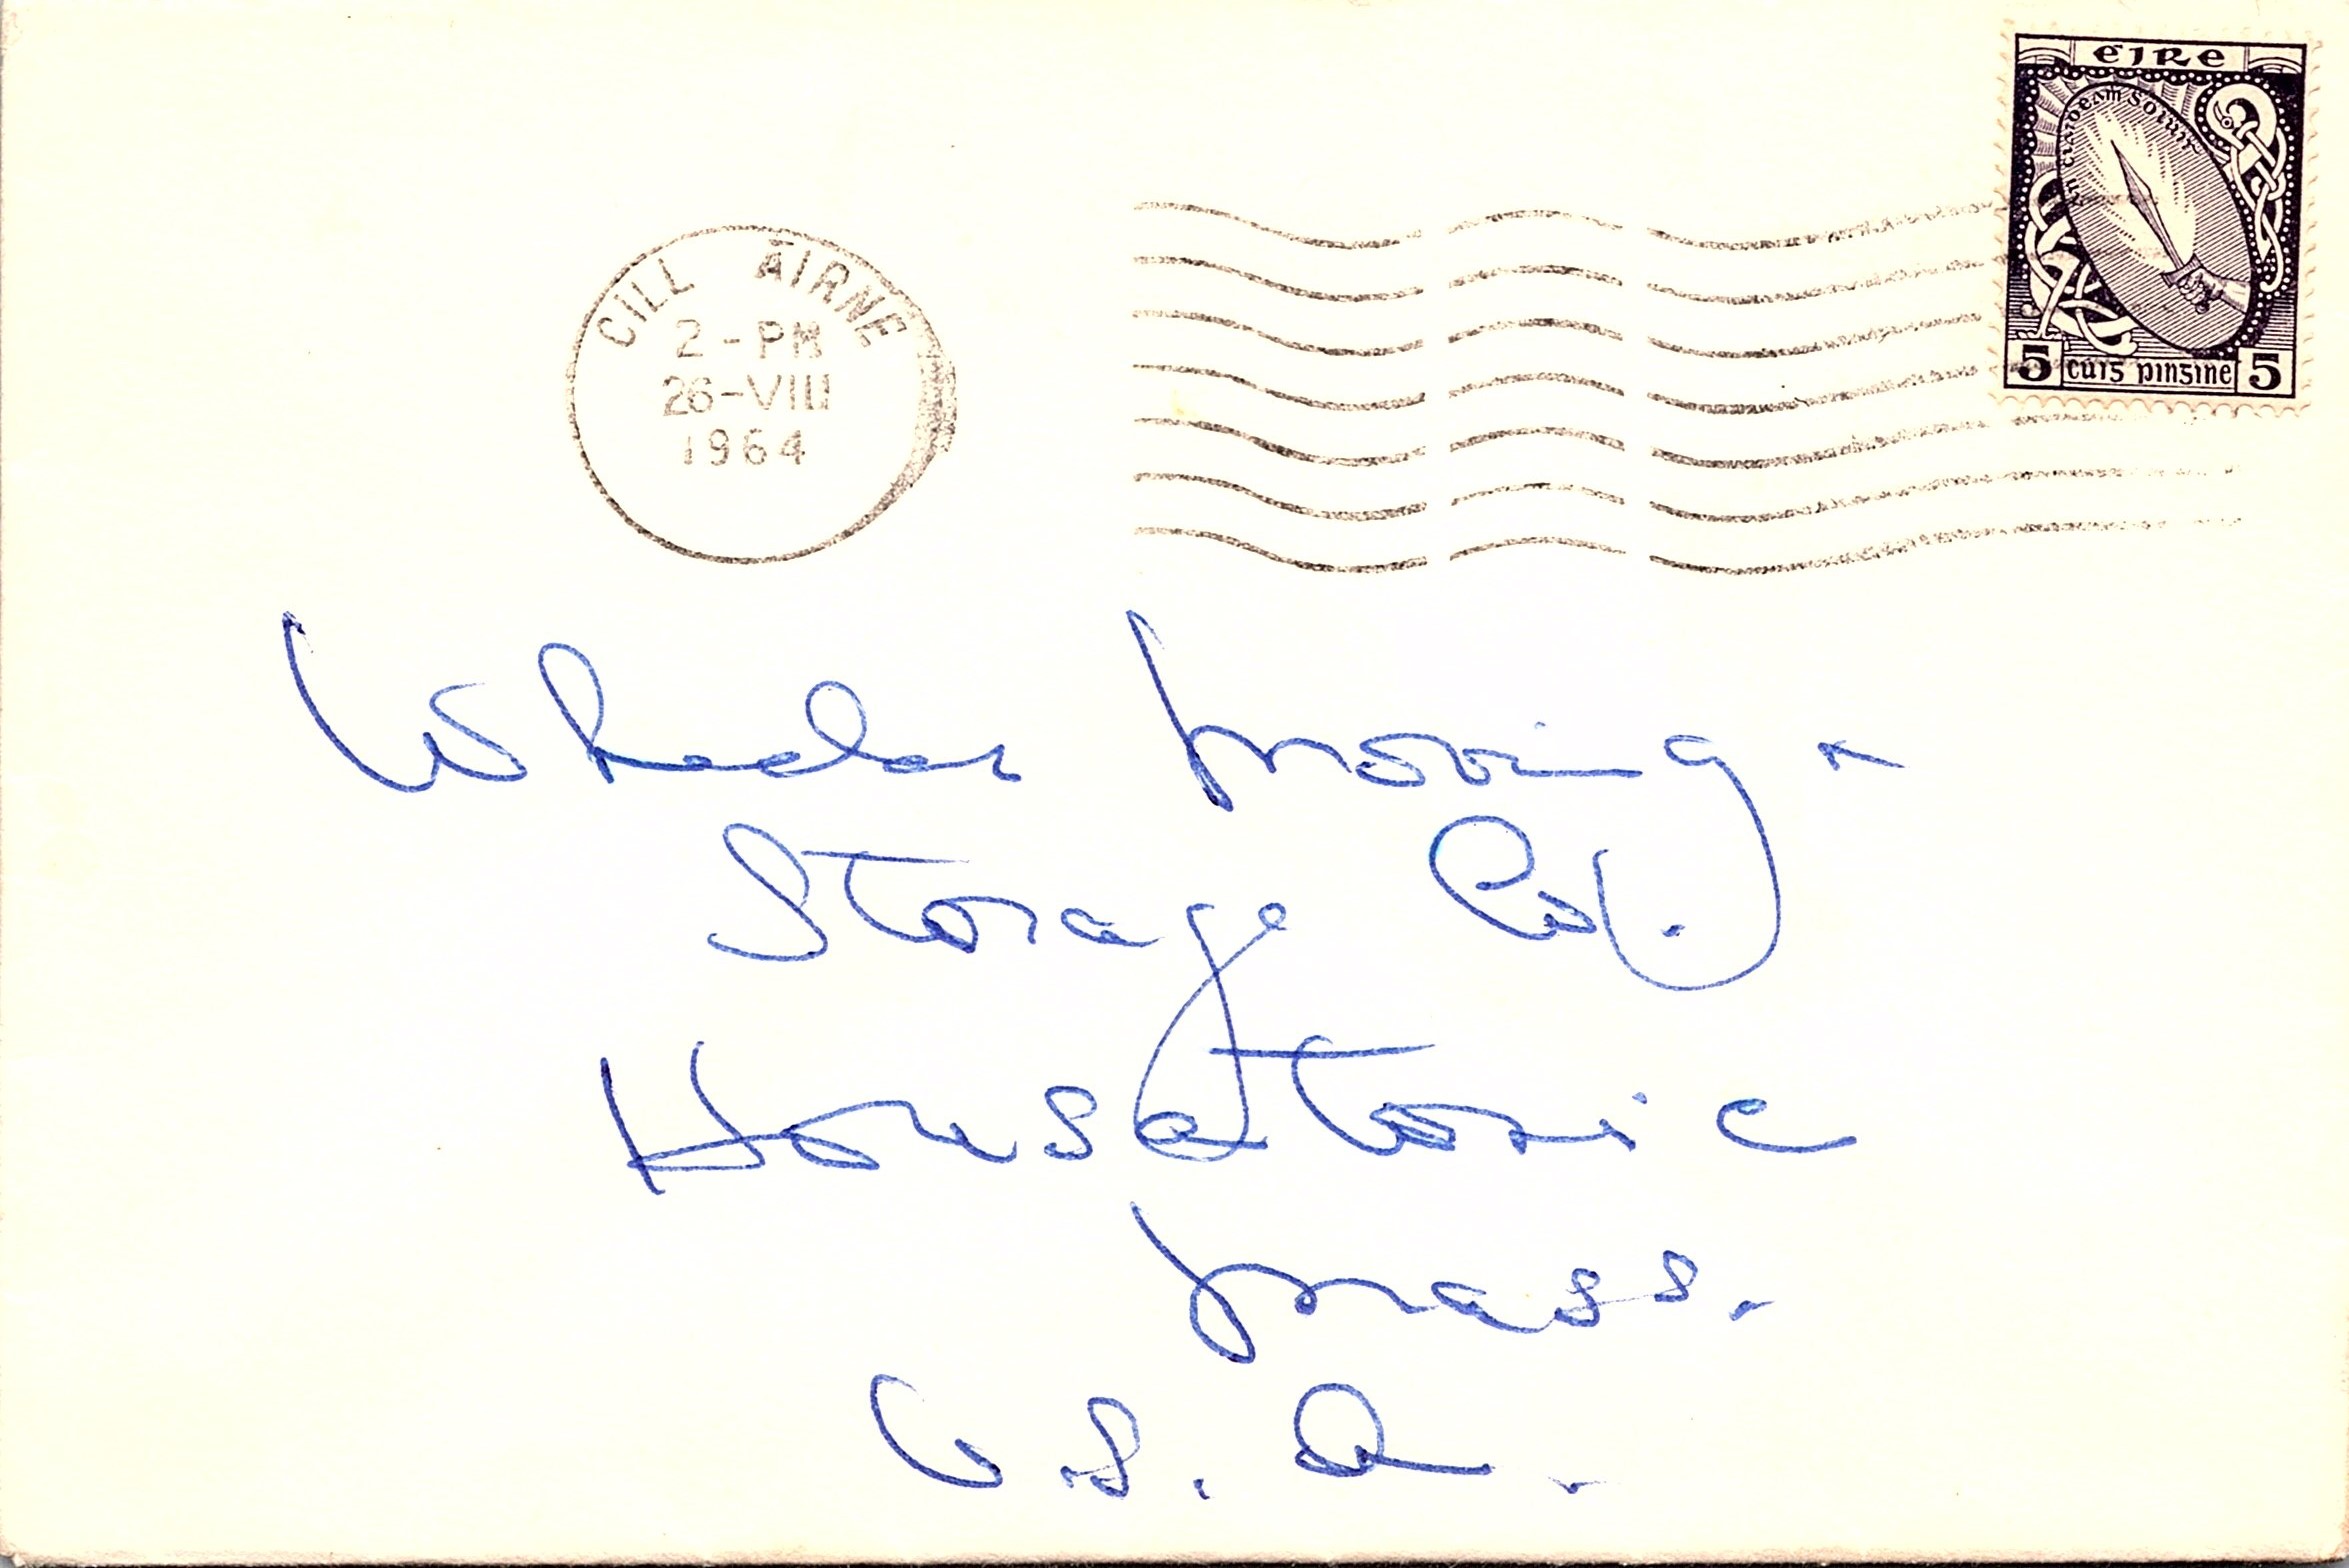 éire
an claideam soluis
5 cúig pingine 5
CILL AIRNE
2-PM
26-VIII
1964
Wheeler Moving &
Storage Co.
Housatonic
Mass.
U.S.A.